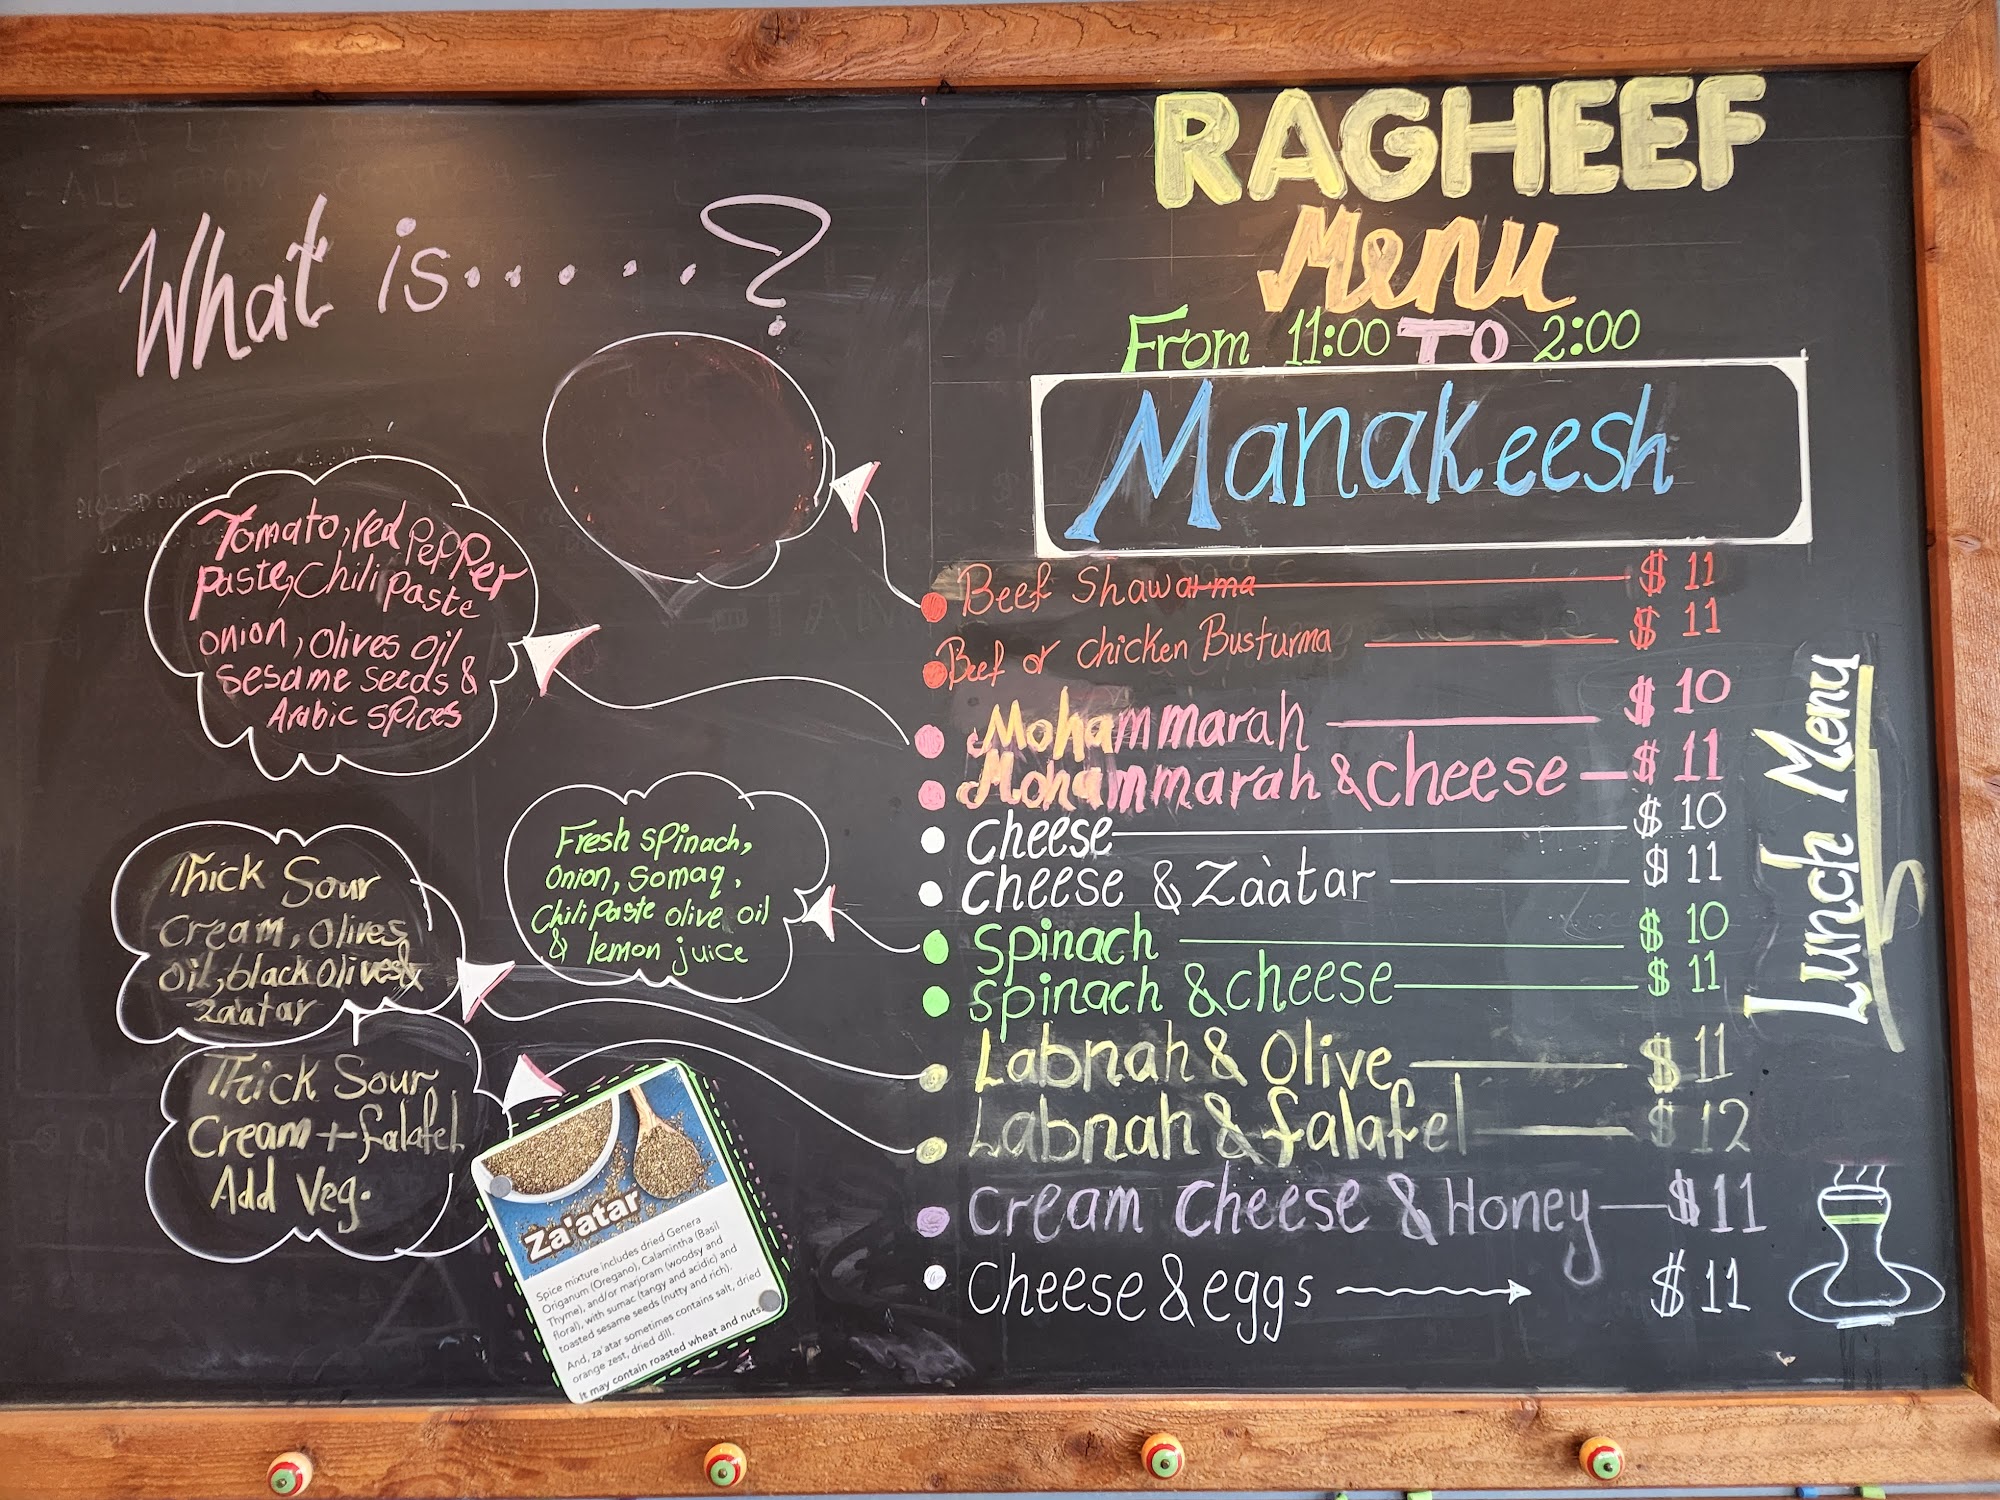 What is......?
Tomato, red Pepper
Paste, Chili Paste
onion, olives oil
Sesame seeds &
Arabic spices
Fresh spinach,
onion, somaq,
Chili Paste olive oil
& lemon juice
Thick Sour
Cream, olives
oil, black olives &
Za'atar
Thick Sour
Cream + falafel
Add Veg.
Za'atar
Spice mixture includes dried Genera
Origanum (Oregano), Calamintha (Basil
Thyme), and/or marjoram (woodsy and
floral), with sumac (tangy and acidic) and
toasted sesame seeds (nutty and rich).
And, za'atar sometimes contains salt, dried
orange zest, dried dill.
It may contain roasted wheat and nuts.
RAGHEEF
Menu
From 11:00 TO 2:00
Manakeesh
Beef Shawarma $ 11
Beef or chicken Busturma $ 11
Mohammarah $ 10
Mohammarah & cheese $ 11
Cheese $ 10
Cheese & Zàatar $ 11
Spinach $ 10
Spinach & cheese $ 11
Labnah & Olive $ 11
Labnah & falafel $ 12
Cream cheese & Honey $ 11
Cheese & eggs $ 11
Lunch Menu